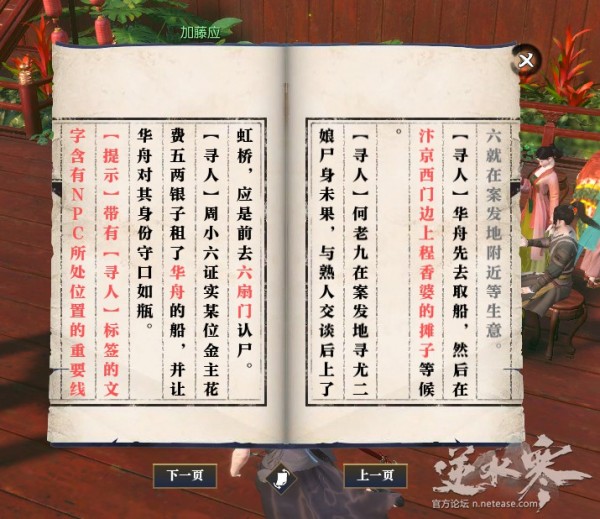 加藤应
六就在案发地附近等生意。
【寻人】华舟先去取船，然后在
汴京西门边上程香婆的摊子等候
。
【寻人】何老九在案发地寻尤二
娘尸身未果，与熟人交谈后上了
虹桥，应是前去六扇门认尸。
【寻人】周小六证实某位金主花
费五两银子租了华舟的船，并让
华舟对其身份守口如瓶。
【提示】带有【寻人】标签的文
字含有NPC所处位置的重要线
下一页
上一页
逆水寒
官方论坛 n.netease.com